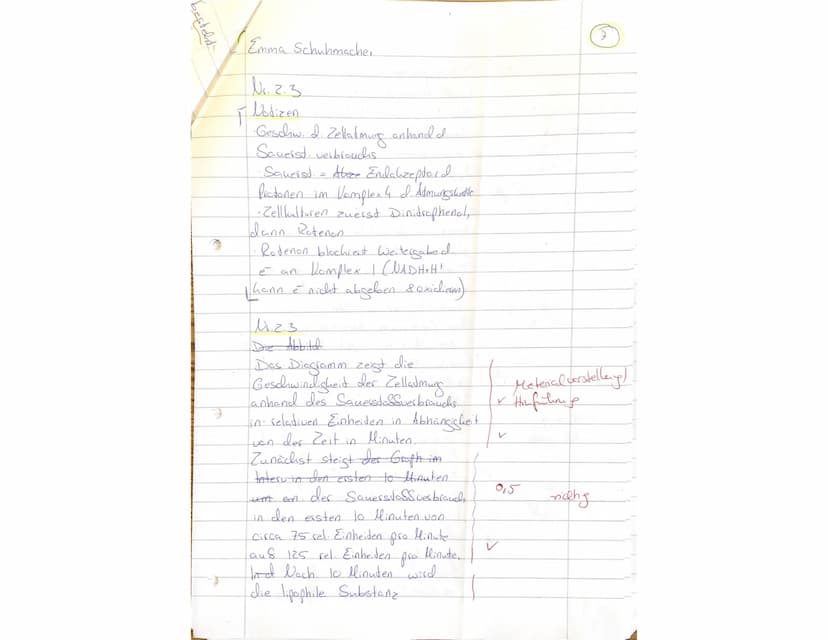 7
Emma Schuhmacher
Nr. 2.3
Notizen
Geschw. d. Zellatmung anhand d.
Sauerst. verbrauchs
Sauerst. = Endakzeptor d.
Protonen im Komplex 4 d. Atmungskette
- Zellkulturen zuerst Dinitrophenol,
dann Rotenon
- Rotenon blockiert Weitergabe d.
e⁻ an Komplex 1 (NADH+H⁺
kann e⁻ nicht abgeben & oxidieren)
Nr. 2.3
Die Abbild
Das Diagramm zeigt die
Geschwindigkeit der Zellatmung
anhand des Sauerstoffverbrauchs
in relativen Einheiten in Abhängigkeit
von der Zeit in Minuten.
Materialvorstellung/
✓ Hinführung
✓
Zunächst steigt der Graph im
Interv in den ersten 10 Minuten
um an der Sauerstoffverbrauch
in den ersten 10 Minuten von
circa 75 rel. Einheiten pro Minute
auf 125 rel. Einheiten pro Minute.
0,5
✓
Nach 10 Minuten wird
die lipophile Substanz